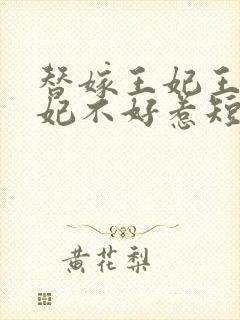 替嫁王妃王
妃不好惹短
黄花梨